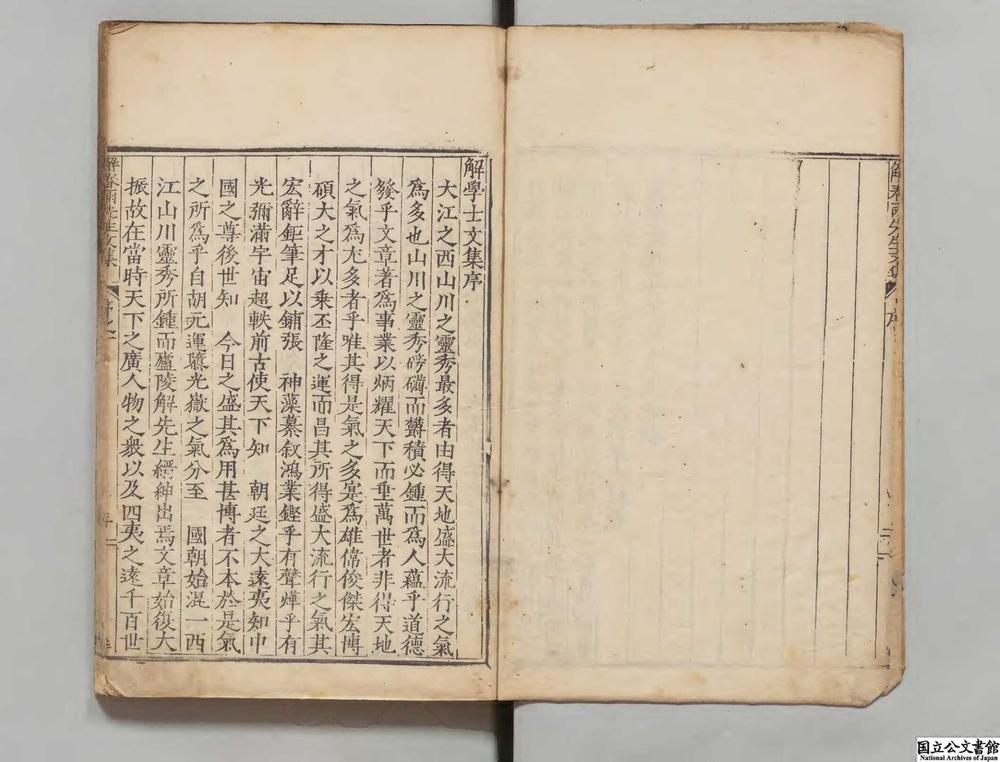 解學士文集序
大江之西山川之靈秀最多者由得天地盛大流行之氣
爲多也山川之靈秀磅礴而欝積必鍾而爲人蘊乎道德
發乎文章著爲事業以炳耀天下而垂萬世者非得天地
之氣爲尤多者乎唯其得是氣之多寔爲雄偉俊傑宏博
碩大之才以乘丕隆之運而昌其所得盛大流行之氣其
宏辭鉅筆足以鋪張 神藻纂叙鴻業鏗乎有聲燁乎有
光彌滿宇宙超軼前古使天下知 朝廷之大遠夷知中
國之尊後世知 今日之盛其爲用甚博者不本於是氣
之所爲乎自胡元運隳光嶽之氣分至 國朝始混一西
江山川靈秀所鍾而廬陵解先生縉紳出焉文章始復大
振故在當時天下之廣人物之衆以及四夷之遠千百世
解春雨先生文集
序
解春雨先生文集
国立公文書館
National Archives of Japan